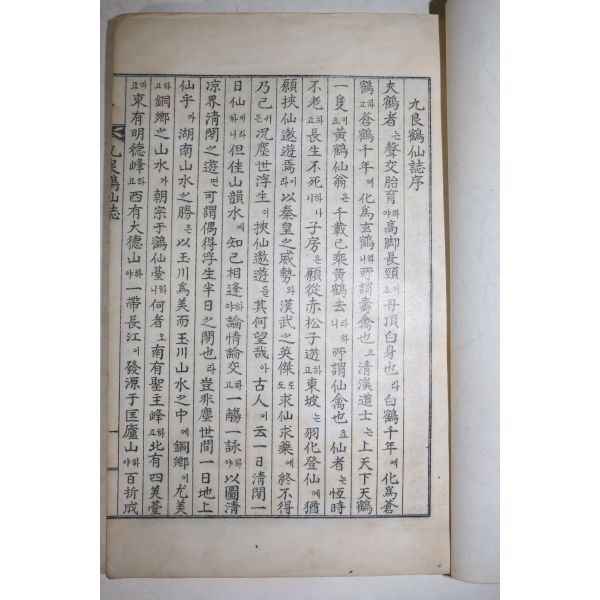 九良鶴仙誌序
夫鶴者는聲交胎育하야高脚長頸이요丹頂白身也라白鶴千年에化爲蒼
鶴하고蒼鶴千年에化爲玄鶴하니所謂壽禽也요清溪道士는上天下天鶴
一隻이요黃鶴仙翁은千載已乘黃鶴去라하니所謂仙禽也요仙者는恆時
不老하고長生不死하나니子房은願從赤松子遊하고東坡는羽化登仙에猶
願挾仙遨遊焉이라以秦皇之威勢와漢武之英傑도求仙求藥에終不得
乃已은况塵世浮生이挾仙遨遊를其何望哉아古人이云一日清閒一
日仙이라하니但佳山韻水에知己相逢하야論情論交하고一觴一詠하야以圖清
凉界清閒之遊면可謂偶得浮生半日之閒也라豈非塵世間一日地上
仙乎아湖南山水之勝은以玉川爲美而玉川山水之中에銅鄉이尤美
하고銅鄉之山水가朝宗于鶴仙臺하니何者오南有聖主峰하고北有四美臺
하고東有明德峰하고西有大德山하야一帶長江이發源于匡廬山하야百折成
九良鶴仙誌
一